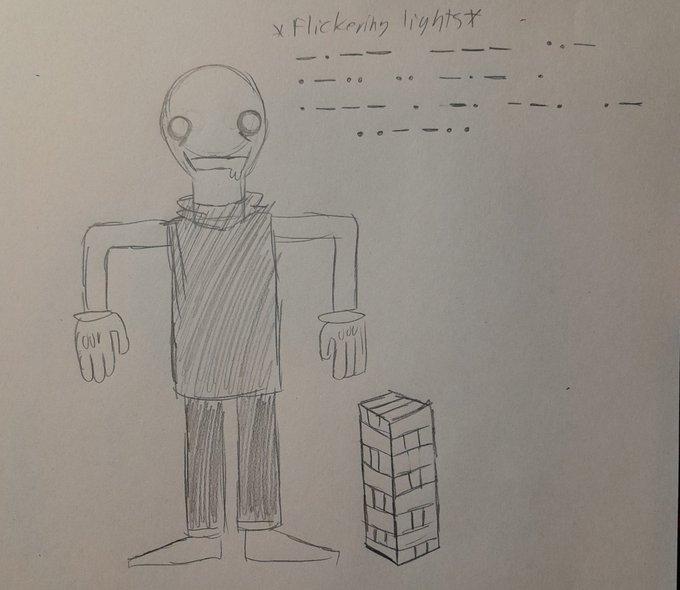 *Flickering lights*
-.-- --- ..-
.-.. .. -.- .
.--- . -. --. .-
..--..